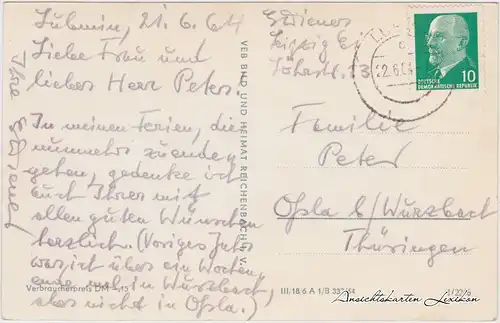 Lubmin, 21.6.64
Liebe Frau und
lieber Herr Peter.
In meinen Ferien, die
nunmehr zuende
gehen, gedenke ich
auch Ihrer mit
allen guten Wünschen
herzlich. (Voriges Jahr
war ich über ein Wochen-
ende mal in Wurzbach,
aber nicht in Oßla.)
Ihre
Verbraucherpreis DM -,15
VEB BILD UND HEIMAT REICHENBACH i. V.
Leipzig
DEUTSCHE
DEMOKRATISCHE REPUBLIK
10
Familie
Peter
Oßla b/Wurzbach
Thüringen
III/18/6 A 1/B
Ansichtskarten Lexikon